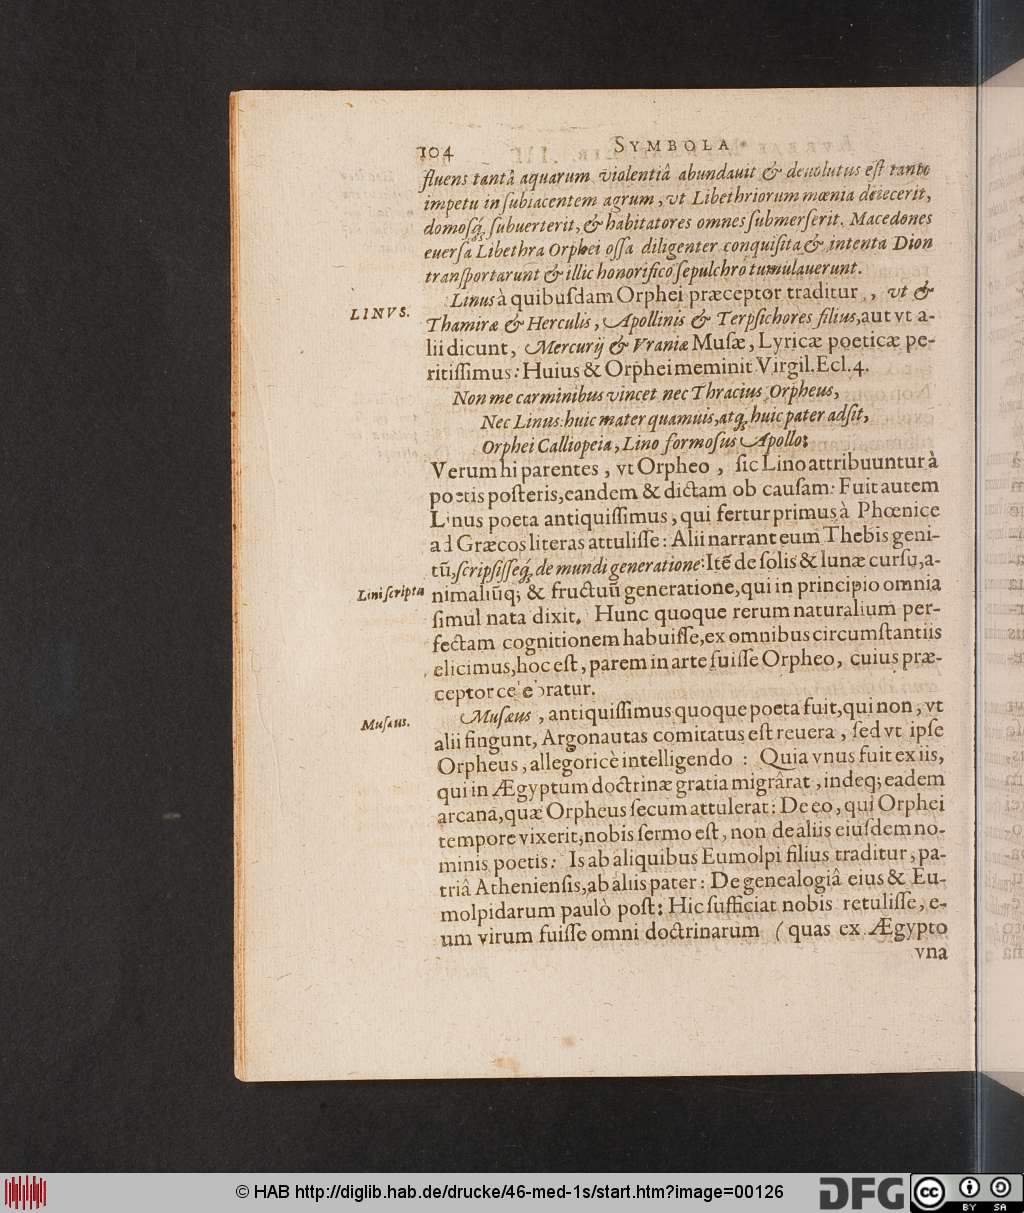 104 SYMBOLA
fluens tantâ aquarum violentiâ abundauit & deuolutus eſt tanto
impetu in ſubiacentem agrum, vt Libethriorum mœnia deiecerit,
domoſq́; ſubuerterit, & habitatores omnes ſubmerſerit. Macedones
euerſa Libethra Orphei oſſa diligenter conquiſita & intenta Dion
tranſportarunt & illic honorifico ſepulchro tumulauerunt.
LINVS.
Linus à quibuſdam Orphei præceptor traditur, vt &
Thamiræ & Herculis, Apollinis & Terpſichores filius, aut vt a-
lii dicunt, Mercurij & Vraniæ Muſæ, Lyricæ poeticæ pe-
ritiſſimus: Huius & Orphei meminit Virgil. Ecl. 4.
Non me carminibus vincet nec Thracius Orpheus,
Nec Linus: huic mater quamuis, atq́; huic pater adſit,
Orphei Calliopeia, Lino formoſus Apollo;
Verum hi parentes, vt Orpheo, ſic Lino attribuuntur à
poetis poſteris, eandem & dictam ob cauſam: Fuit autem
Linus poeta antiquiſſimus, qui fertur primus à Phœnice
ad Græcos literas attuliſſe: Alii narrant eum Thebis geni-
tū, ſcripſiſſeq́; de mundi generatione: Itē de ſolis & lunæ curſu, a-
Lini ſcripta
nimaliūq; & fructuū generatione, qui in principio omnia
ſimul nata dixit. Hunc quoque rerum naturalium per-
fectam cognitionem habuiſſe, ex omnibus circumſtantiis
elicimus, hoc eſt, parem in arte fuiſſe Orpheo, cuius præ-
ceptor celebratur.
Muſæus.
Muſæus, antiquiſſimus quoque poeta fuit, qui non, vt
alii fingunt, Argonautas comitatus eſt reuera, ſed vt ipſe
Orpheus, allegoricè intelligendo: Quia vnus fuit ex iis,
qui in Ægyptum doctrinæ gratia migrârat, indeq; eadem
arcana, quæ Orpheus ſecum attulerat: De eo, qui Orphei
tempore vixerit, nobis ſermo eſt, non de aliis eiuſdem no-
minis poetis: Is ab aliquibus Eumolpi filius traditur, pa-
triâ Athenienſis, ab aliis pater: De genealogiâ eius & Eu-
molpidarum paulò poſt: Hic ſufficiat nobis retuliſſe, e-
um virum fuiſſe omni doctrinarum (quas ex Ægypto
vna
© HAB http://diglib.hab.de/drucke/46-med-1s/start.htm?image=00126
DFG
cc BY SA